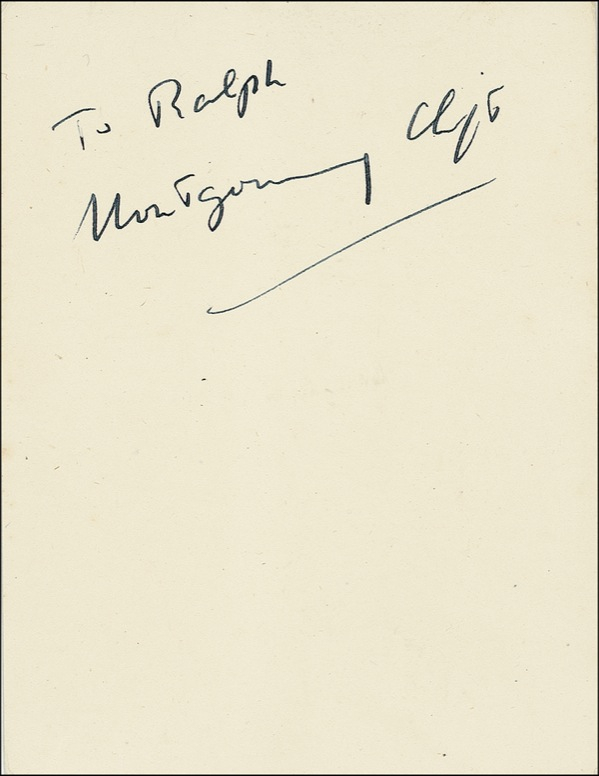 To Ralph
Montgomery Clift